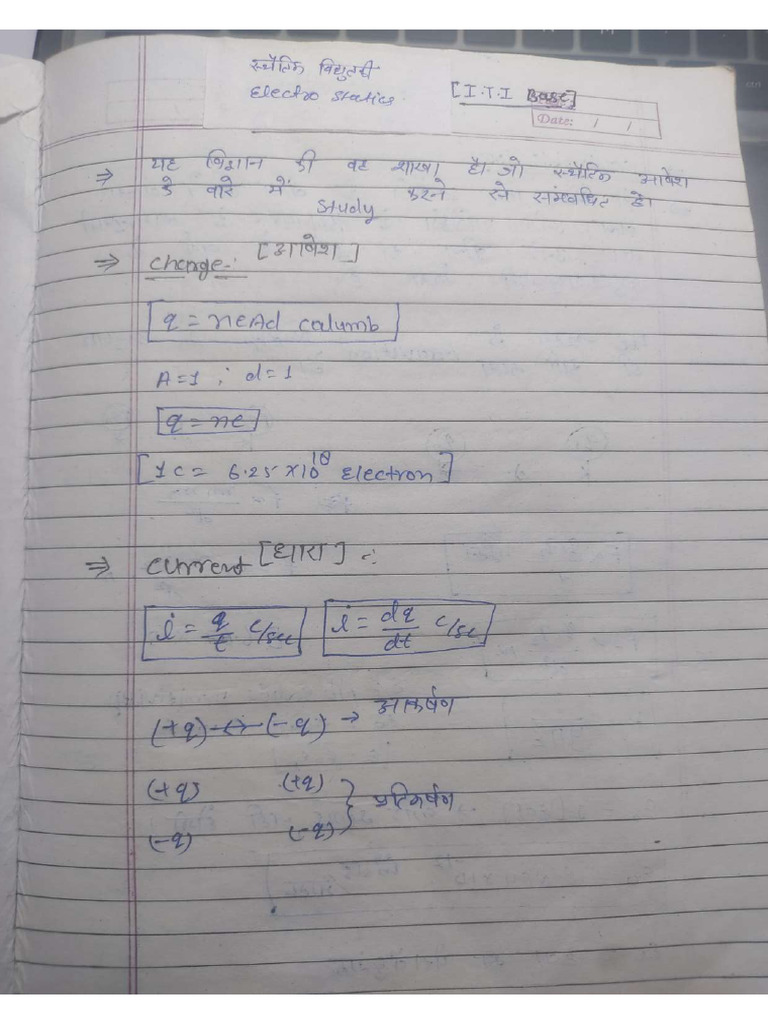 स्थैतिक विद्युतकी
Electro Statics
[I.T.I Base]
Date: / /
⇒ यह विज्ञान की वह शाखा है। जो स्थैतिक आवेश
के बारे में study करने से सम्बन्धित है।
⇒ Charge:- [आवेश]
q = neAd columb
A=1 ; d=1
q = ne
[1C = 6.25×10¹⁸ Electron]
⇒ Current [धारा] :-
i = q/t c/sec i = dq/dt c/sec
(+q) ↔ (-q) → आकर्षण
(+q) (+q)
} प्रतिकर्षण
(-q) (-q)